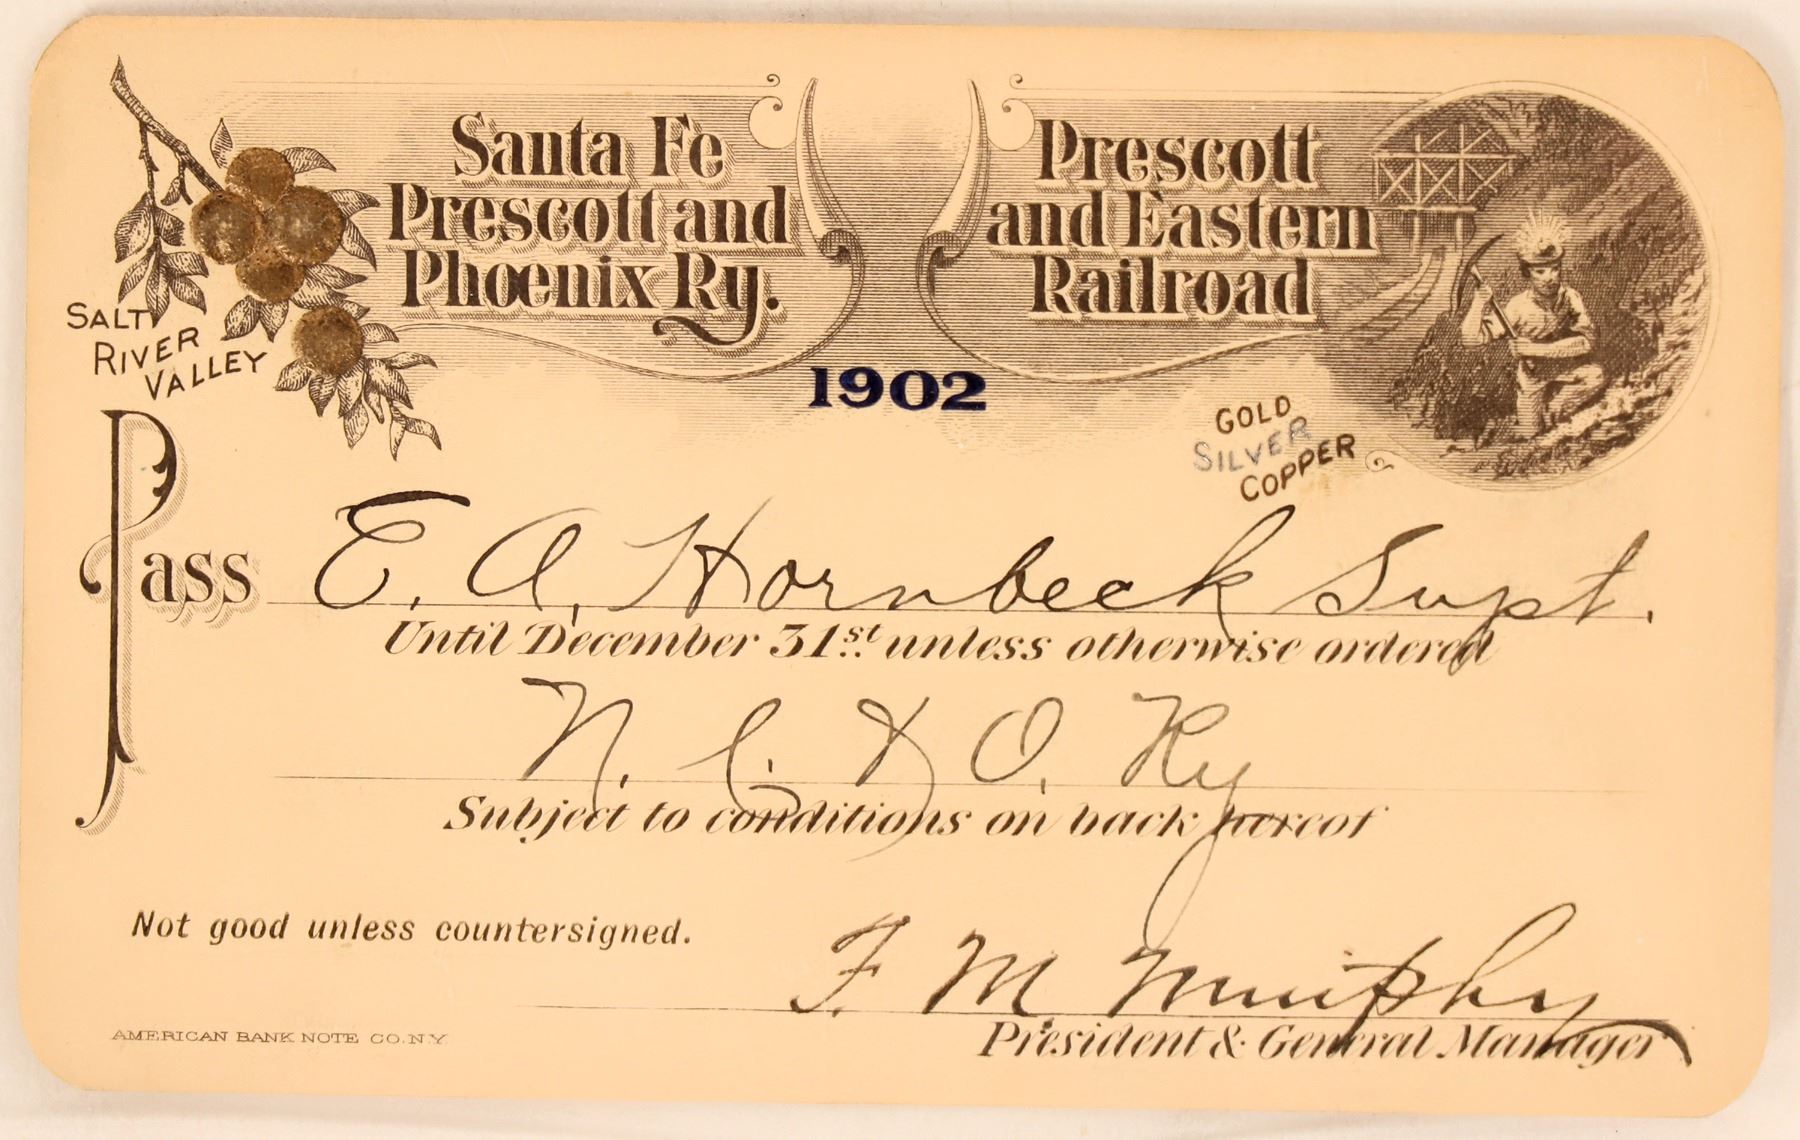 Santa Fe
Prescott and
Phoenix Ry.
Prescott
and Eastern
Railroad
SALT
RIVER
VALLEY
1902
GOLD
SILVER
COPPER
Pass E. A. Hornbeck Supt.
Until December 31st unless otherwise ordered
N. C. & O. Ry
Subject to conditions on back hereof
Not good unless countersigned.
F. M. Murphy
President & General Manager
AMERICAN BANK NOTE CO. N.Y.